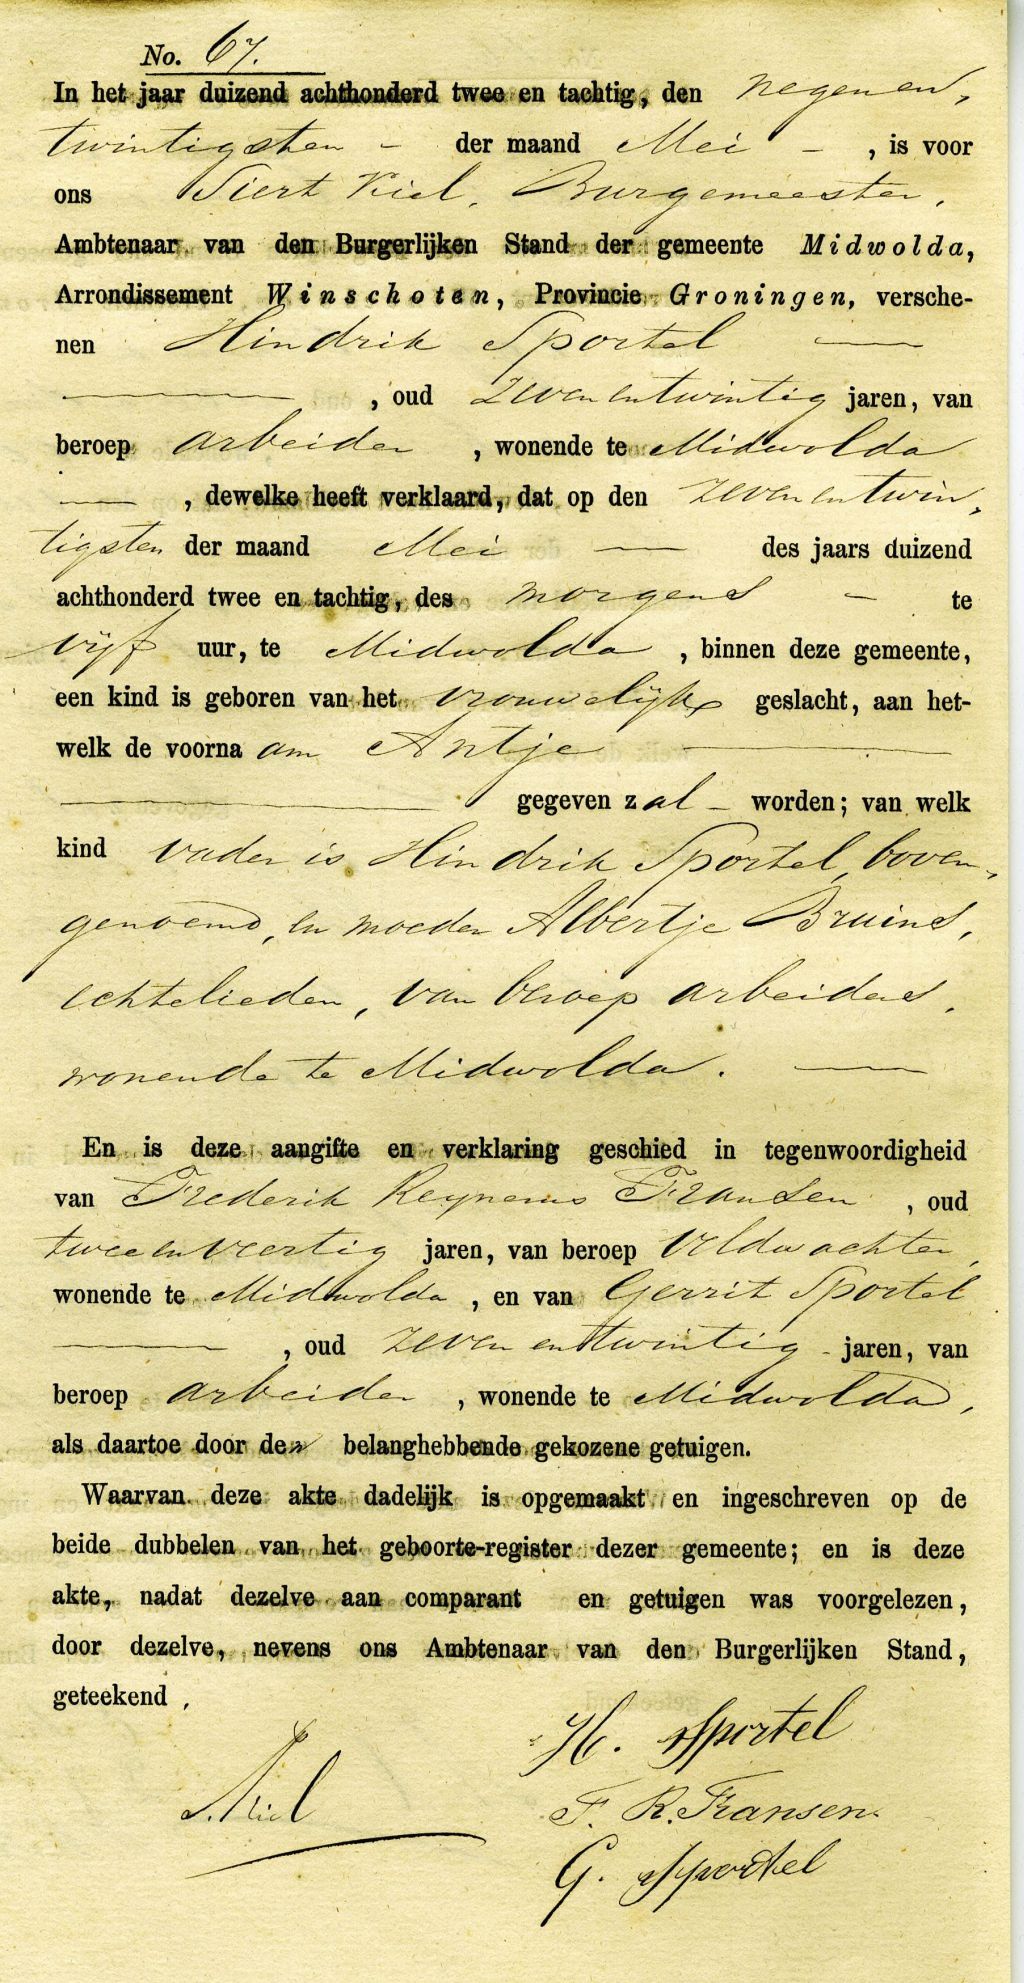 No. 67.
In het jaar duizend achthonderd twee en tachtig, den negenen,
twintigsten - der maand Mei - , is voor
ons Siert Kiel, Burgemeester,
Ambtenaar van den Burgerlijken Stand der gemeente Midwolda,
Arrondissement Winschoten, Provincie Groningen, versche-
nen Hindrik Sportel —
— , oud zevenentwintig jaren, van
beroep arbeider , wonende te Midwolda
— , dewelke heeft verklaard, dat op den zevenentwin,
tigsten der maand Mei — des jaars duizend
achthonderd twee en tachtig, des morgens - te
vijf uur, te Midwolda , binnen deze gemeente,
een kind is geboren van het vrouwelijke geslacht, aan het-
welk de voorna am Antje —
— gegeven zal - worden; van welk
kind vader is Hindrik Sportel, boven,
genoemd, en moeder Albertje Bruins,
echtelieden, van beroep arbeiders,
wonende te Midwolda. —
En is deze aangifte en verklaring geschied in tegenwoordigheid
van Frederik Reynerus Fransen , oud
tweeenveertig jaren, van beroep veldwachter,
wonende te Midwolda , en van Gerrit Sportel
— , oud zevenentwintig - jaren, van
beroep arbeider , wonende te Midwolda,
als daartoe door den belanghebbende gekozene getuigen.
Waarvan deze akte dadelijk is opgemaakt en ingeschreven op de
beide dubbelen van het geboorte-register dezer gemeente; en is deze
akte, nadat dezelve aan comparant en getuigen was voorgelezen,
door dezelve, nevens ons Ambtenaar van den Burgerlijken Stand,
geteekend.
H. Sportel
S. Kiel
F. R. Fransen.
G. Sportel